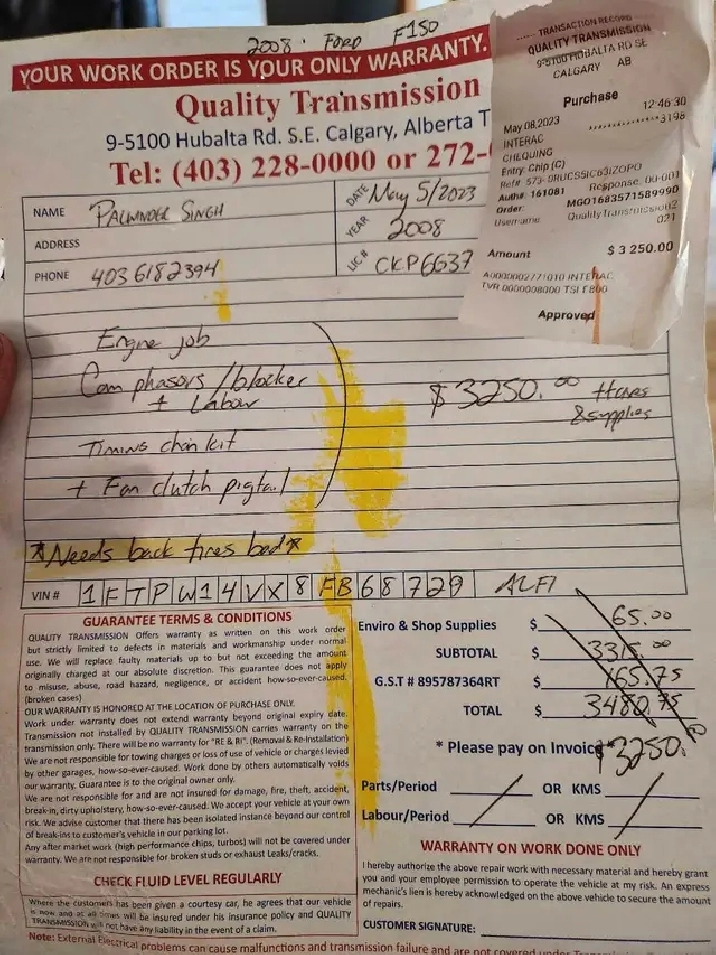 2008. FORD F150
YOUR WORK ORDER IS YOUR ONLY WARRANTY.
Quality Transmission
9-5100 Hubalta Rd. S.E. Calgary, Alberta T
Tel: (403) 228-0000 or 272-
TRANSACTION RECORD
QUALITY TRANSMISSION
9-5100 HUBALTA RD SE
CALGARY AB
Purchase
May 08,2023 12:46:30
INTERAC ***************3198
CHEQUING
Entry: Chip (C)
Auth#: 161081 Response: 00-001
Order: MGO1683571589990
Username:
021
Amount $ 3 250.00
A0000002771010 INTERAC
TVR 0000008000 TSI F800
Approved
NAME PALWINDER SINGH
DATE May 5/2023
ADDRESS
YEAR 2008
PHONE 403 6182394
LIC# CKP6637
Engine job
Cam phasors/blocker
+ Labour
Timing chain kit
+ Fan clutch pigtail
$3250.00 +taxes
& supplies
*Needs back tires bad*
VIN # 1FTPW14VX8FB68729 ALFI
GUARANTEE TERMS & CONDITIONS
QUALITY TRANSMISSION Offers warranty as written on this work order
but strictly limited to defects in materials and workmanship under normal
use. We will replace faulty materials up to but not exceeding the amount
originally charged at our absolute discretion. This guarantee does not apply
to misuse, abuse, road hazard, negligence, or accident how-so-ever-caused.
(broken cases)
OUR WARRANTY IS HONORED AT THE LOCATION OF PURCHASE ONLY.
Work under warranty does not extend warranty beyond original expiry date.
Transmission not installed by QUALITY TRANSMISSION carries warranty on the
transmission only. There will be no warranty for "RE & RI". (Removal & Re-installation)
We are not responsible for towing charges or loss of use of vehicle or charges levied
by other garages, how-so-ever-cause. Work done by others automatically voids
our warranty. Guarantee is to the original owner only.
We are not responsible for and are not insured for damage, fire, theft, accident,
break-in, dirty upholstery, how-so-ever-caused. We accept your vehicle at your own
risk. We advise customer that there has been isolated instance beyond our control
of break-ins to customer's vehicle in our parking lot.
Any after market work (high performance chips, turbos) will not be covered under
warranty. We are not responsible for broken studs or exhaust Leaks/cracks.
CHECK FLUID LEVEL REGULARLY
Where the customers has been given a courtesy car, he agrees that our vehicle
is now and at all times will be insured under his insurance policy and QUALITY
TRANSMISSION will not have any liability in the event of a claim.
Enviro & Shop Supplies $ 65.00
SUBTOTAL $ 3315.00
G.S.T # 895787364RT $ 165.75
TOTAL $ 3480.75
* Please pay on Invoice $3250.00
Parts/Period / OR KMS /
Labour/Period / OR KMS /
WARRANTY ON WORK DONE ONLY
I hereby authorize the above repair work with necessary material and hereby grant
you and your employee permission to operate the vehicle at my risk. An express
mechanic's lien is hereby acknowledged on the above vehicle to secure the amount
of repairs.
CUSTOMER SIGNATURE:
Note: External Electrical problems can cause malfunctions and transmission failure and are not covered under